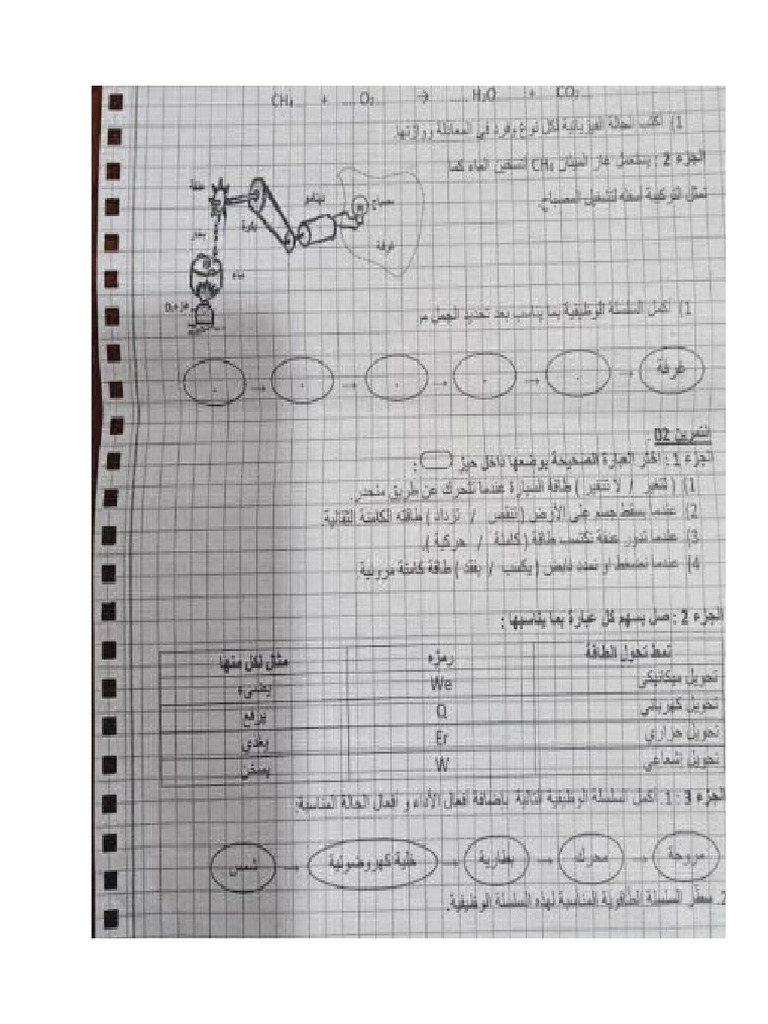 CH₄ + ....O₂ → ..... H₂O + CO₂
1) أكتب الحالة الفيزيائية لكل نوع وفرد في المعادلة ووازنها.
الجزء 2 : يستعمل غاز الميثان CH₄ لتسخين الماء كما
تمثل التركيبة أسفله لتشغيل المصباح.
عنفة
بخار
بكرة
دينامو
مصباح
غرفة
ماء
غاز+O₂
1) أكمل السلسلة الوظيفية بما يناسب بعد تحديد الجمل
. → . → . → . → . → غرفة
التمرين 02 :
الجزء 1 : اختر العبارة الصحيحة بوضعها داخل حيز :
1) ( تتغير / لا تتغير ) طاقة السيارة عندما تتحرك عن طريق منحدر.
2) عندما يسقط جسم على الأرض ( تنقص / تزداد ) طاقته الكامنة الثقالية.
3) عندما تدور عنفة تكتسب طاقة ( كامنة / حركية ).
4) عندما نضغط او نمدد نابض ( يكسب / يفقد ) طاقة كامنة مرونية.
الجزء 2 : صل بسهم كل عبارة بما يناسبها :
نمط تحول الطاقة رمزه مثال لكل منها
تحويل ميكانيكي We يضيء
تحويل كهربائي Q يرفع
تحويل حراري Er يغذي
تحويل إشعاعي W يسخن
الجزء 3 : 1. أكمل السلسلة الوظيفية التالية بإضافة أفعال الأداء و أفعال الحالة المناسبة:
شمس → خلية كهروضوئية → بطارية → محرك → مروحة
2. سطّر السلسلة الطاقوية المناسبة لهذه السلسلة الوظيفية.